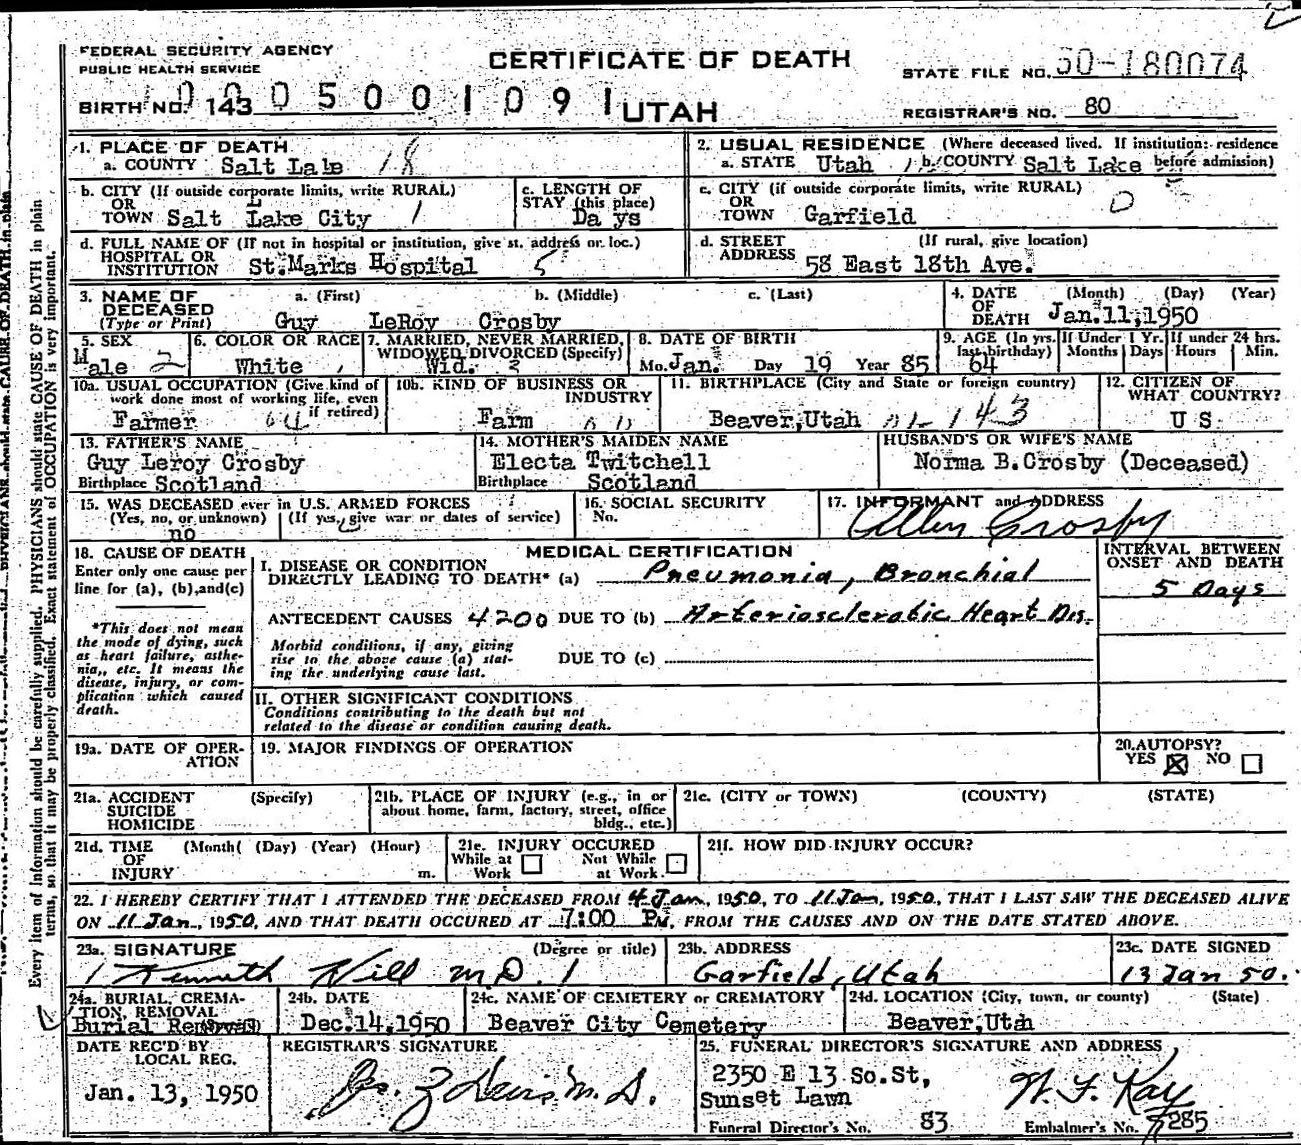 FEDERAL SECURITY AGENCY
PUBLIC HEALTH SERVICE
CERTIFICATE OF DEATH
STATE FILE NO. 50-180074
BIRTH NO. 143 0 0 5 0 0 1 0 9 1 UTAH
REGISTRAR'S NO. 80
1. PLACE OF DEATH
a. COUNTY Salt Lale 18
2. USUAL RESIDENCE (Where deceased lived. If institution: residence before admission)
a. STATE Utah b. COUNTY Salt Lake
b. CITY (If outside corporate limits, write RURAL)
OR
TOWN Salt Lake City 1
c. LENGTH OF
STAY (this place)
Da ys
c. CITY (if outside corporate limits, write RURAL)
OR
TOWN Garfield
d. FULL NAME OF (If not in hospital or institution, give st. address or loc.)
HOSPITAL OR
INSTITUTION St.Marks Hospital 5
d. STREET (If rural, give location)
ADDRESS 58 East 18th Ave.
3. NAME OF a. (First) b. (Middle) c. (Last)
DECEASED
(Type or Print) Guy LeRoy Crosby
4. DATE (Month) (Day) (Year)
OF
DEATH Jan.11,1950
5. SEX
Male 2
6. COLOR OR RACE
White
7. MARRIED, NEVER MARRIED,
WIDOWED, DIVORCED (Specify)
Wid.
8. DATE OF BIRTH
Mo. Jan. Day 19 Year 85
9. AGE (In yrs. last birthday)
64
If Under 1 Yr.
Months Days
If under 24 hrs.
Hours Min.
10a. USUAL OCCUPATION (Give kind of
work done most of working life, even
if retired)
Farmer
10b. KIND OF BUSINESS OR
INDUSTRY
Farm
11. BIRTHPLACE (City and State or foreign country)
Beaver,Utah 143
12. CITIZEN OF
WHAT COUNTRY?
U S
13. FATHER'S NAME
Guy Leroy Crosby
Birthplace Scotland
14. MOTHER'S MAIDEN NAME
Electa Twitchell
Birthplace Scotland
HUSBAND'S OR WIFE'S NAME
Norma B.Crosby (Deceased)
15. WAS DECEASED ever in U.S. ARMED FORCES
(Yes, no, or unknown) (If yes, give war or dates of service)
no
16. SOCIAL SECURITY
No.
17. INFORMANT and ADDRESS
Allen Crosby
18. CAUSE OF DEATH
Enter only one cause per
line for (a), (b),and(c)
*This does not mean
the mode of dying, such
as heart failure, asthe-
nia,, etc. It means the
disease, injury, or com-
plication which caused
death.
MEDICAL CERTIFICATION
I. DISEASE OR CONDITION
DIRECTLY LEADING TO DEATH* (a) Pneumonia, Bronchial
ANTECEDENT CAUSES 4200 DUE TO (b) Arteriosclerotic Heart Dis.
Morbid conditions, if any, giving
rise to the above cause (a) stat-
ing the underlying cause last.
DUE TO (c)
INTERVAL BETWEEN
ONSET AND DEATH
5 Days
II. OTHER SIGNIFICANT CONDITIONS
Conditions contributing to the death but not
related to the disease or condition causing death.
19a. DATE OF OPER-
ATION
19. MAJOR FINDINGS OF OPERATION
20.AUTOPSY?
YES NO
21a. ACCIDENT (Specify)
SUICIDE
HOMICIDE
21b. PLACE OF INJURY (e.g., in or
about home, farm, factory, street, office
bldg., etc.)
21c. (CITY or TOWN) (COUNTY) (STATE)
21d. TIME (Month( (Day) (Year) (Hour)
OF
INJURY m.
21e. INJURY OCCURED
While at Work Not While at Work
21f. HOW DID INJURY OCCUR?
22. I HEREBY CERTIFY THAT I ATTENDED THE DECEASED FROM 4 Jan, 1950, TO 11 Jan, 1950, THAT I LAST SAW THE DECEASED ALIVE
ON 11 Jan, 1950, AND THAT DEATH OCCURED AT 7:00 PM, FROM THE CAUSES AND ON THE DATE STATED ABOVE.
23a. SIGNATURE (Degree or title)
Kenneth Hill M.D.
23b. ADDRESS
Garfield, Utah
23c. DATE SIGNED
13 Jan 50.
24a. BURIAL, CREMA-
TION, REMOVAL
Burial Removal
24b. DATE
Dec.14,1950
24c. NAME OF CEMETERY or CREMATORY
Beaver City Cemetery
24d. LOCATION (City, town, or county) (State)
Beaver,Utah
DATE REC'D BY
LOCAL REG.
Jan. 13, 1950
REGISTRAR'S SIGNATURE
M.D.
25. FUNERAL DIRECTOR'S SIGNATURE AND ADDRESS
2350 E 13 So.St,
Sunset Lawn
W. F. Kay
Funeral Director's No. 83 Embalmer's No. 285
Every item of information should be carefully supplied. PHYSICIANS should state CAUSE OF DEATH in plain
terms, so that it may be properly classified. Exact statement of OCCUPATION is very important.